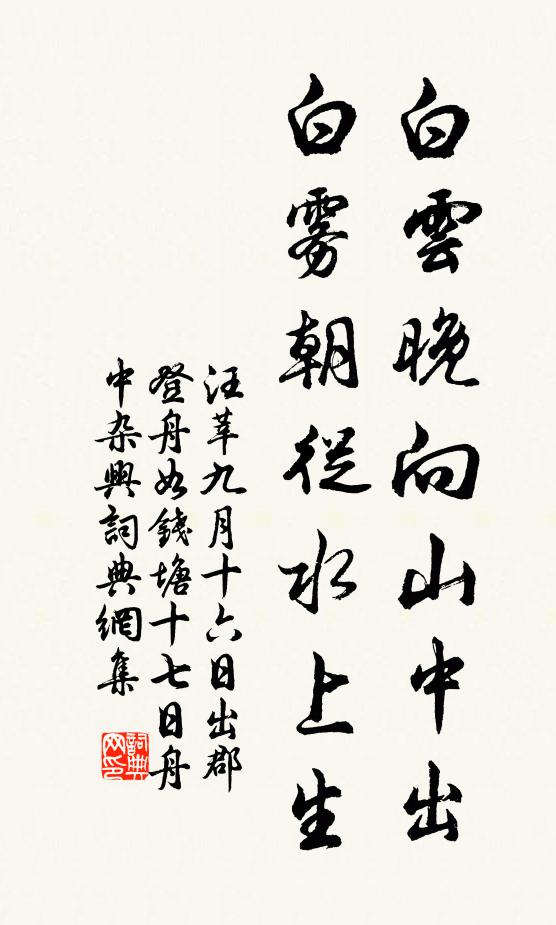 白雲晚向山中出
白雾朝從水上生
汪莘九月十六日出郡
登舟如錢塘十七日舟
中杂興詞典網集
詞典
网印